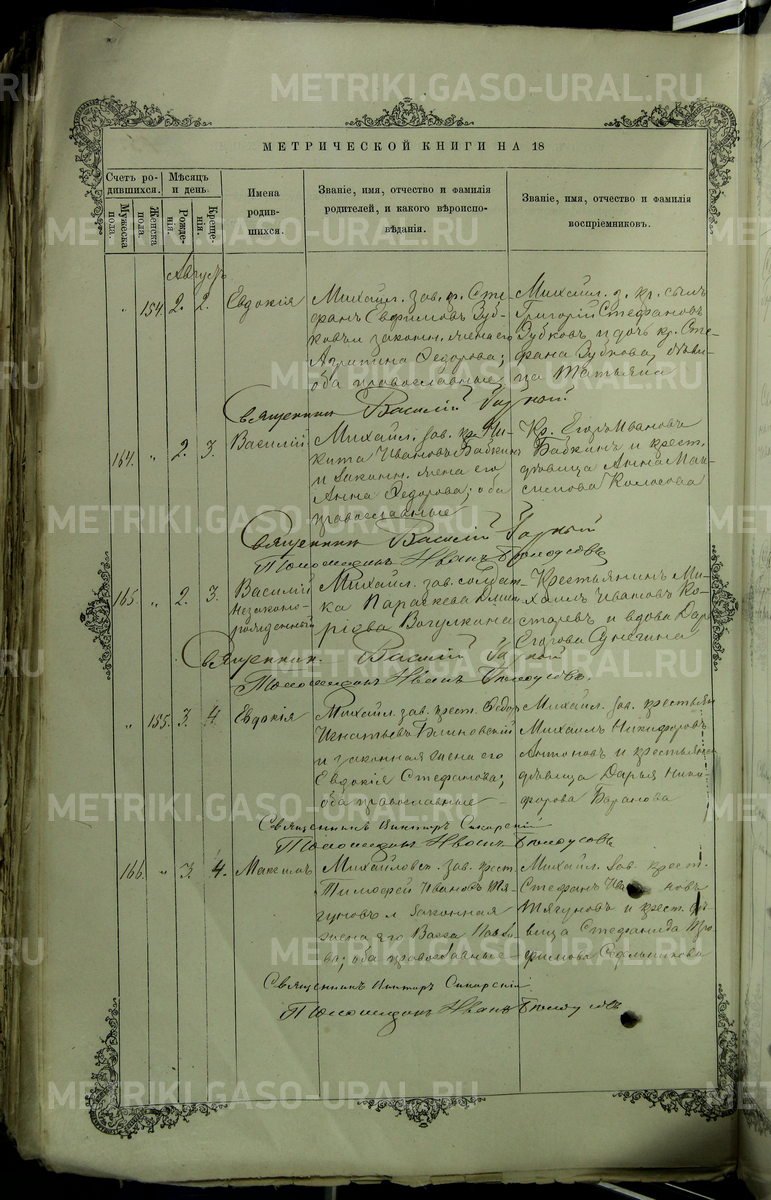 МЕТРИЧЕСКОЙ КНИГИ НА 18
Счетъ ро-
дившихся.
Мѣсяцъ
и день.
Мужеска
пола.
Женска
пола.
Рожде-
нія.
Креще-
нія.
Имена
родив-
шихся.
Званіе, имя, отчество и фамилія
родителей, и какого вѣроиспо-
вѣданія.
Званіе, имя, отчество и фамилія
воспріемниковъ.
Августъ
" 154. 2. 2. Евдокія
Михайл. зав. кр. Сте-
фанъ Евфимовъ Зуб-
ковъ и законн. жена его
Агрипина Ѳедорова;
оба православные
Михайл. з. кр. сынъ
Григорій Стефановъ
Зубковъ и дочь кр. Сте-
фана Зубкова, дѣви-
ца Татьяна
Священникъ Василій
164. " 2. 3. Василій
Михайл. зав. кр. Ни-
кита Ивановъ Бабкинъ
и законн. жена его
Анна Ѳедорова; оба
православные
Кр. Егоръ Ивановъ
Бабкинъ и крест.
дѣвица Анна Мак-
симова Колосова
Священникъ Василій
Псаломщикъ Иванъ Бѣлоусовъ
165. " 2. 3. Василій
незаконно-
рожденный
Михайл. зав. солдат-
ка Параскева Дмит-
ріева Вагулкина
Крестьянинъ Ми-
хаилъ Ивановъ Ко-
старевъ и вдова Дар.
Егорова
Священникъ Василій
Псаломщикъ Иванъ Бѣлоусовъ.
" 155. 3. 4. Евдокія
Михайл. зав. крест. Ѳедоръ
Игнатьевъ Блиновскій
и законная жена его
Евдокія Стефанова;
оба православные
Михайл. зав. крестьян.
Михаилъ Никифоровъ
Антоновъ и крестьянск.
дѣвица Дарья Ники-
форова Баранова
Священникъ Викторъ
Псаломщикъ Иванъ Бѣлоусовъ
166. " 3. 4. Максимъ
Михайловск. зав. крест.
Тимофей Ивановъ Тя-
гуновъ и законная
жена его Васса Павло-
ва; оба православные
Михайл. зав. крест.
Стефанъ Ивановъ
Тягуновъ и крест. дѣ-
вица Стефанида Тро-
фимова
Священникъ Викторъ
Псаломщикъ Иванъ Бѣлоусовъ
METRIKI.GASO-URAL.RU